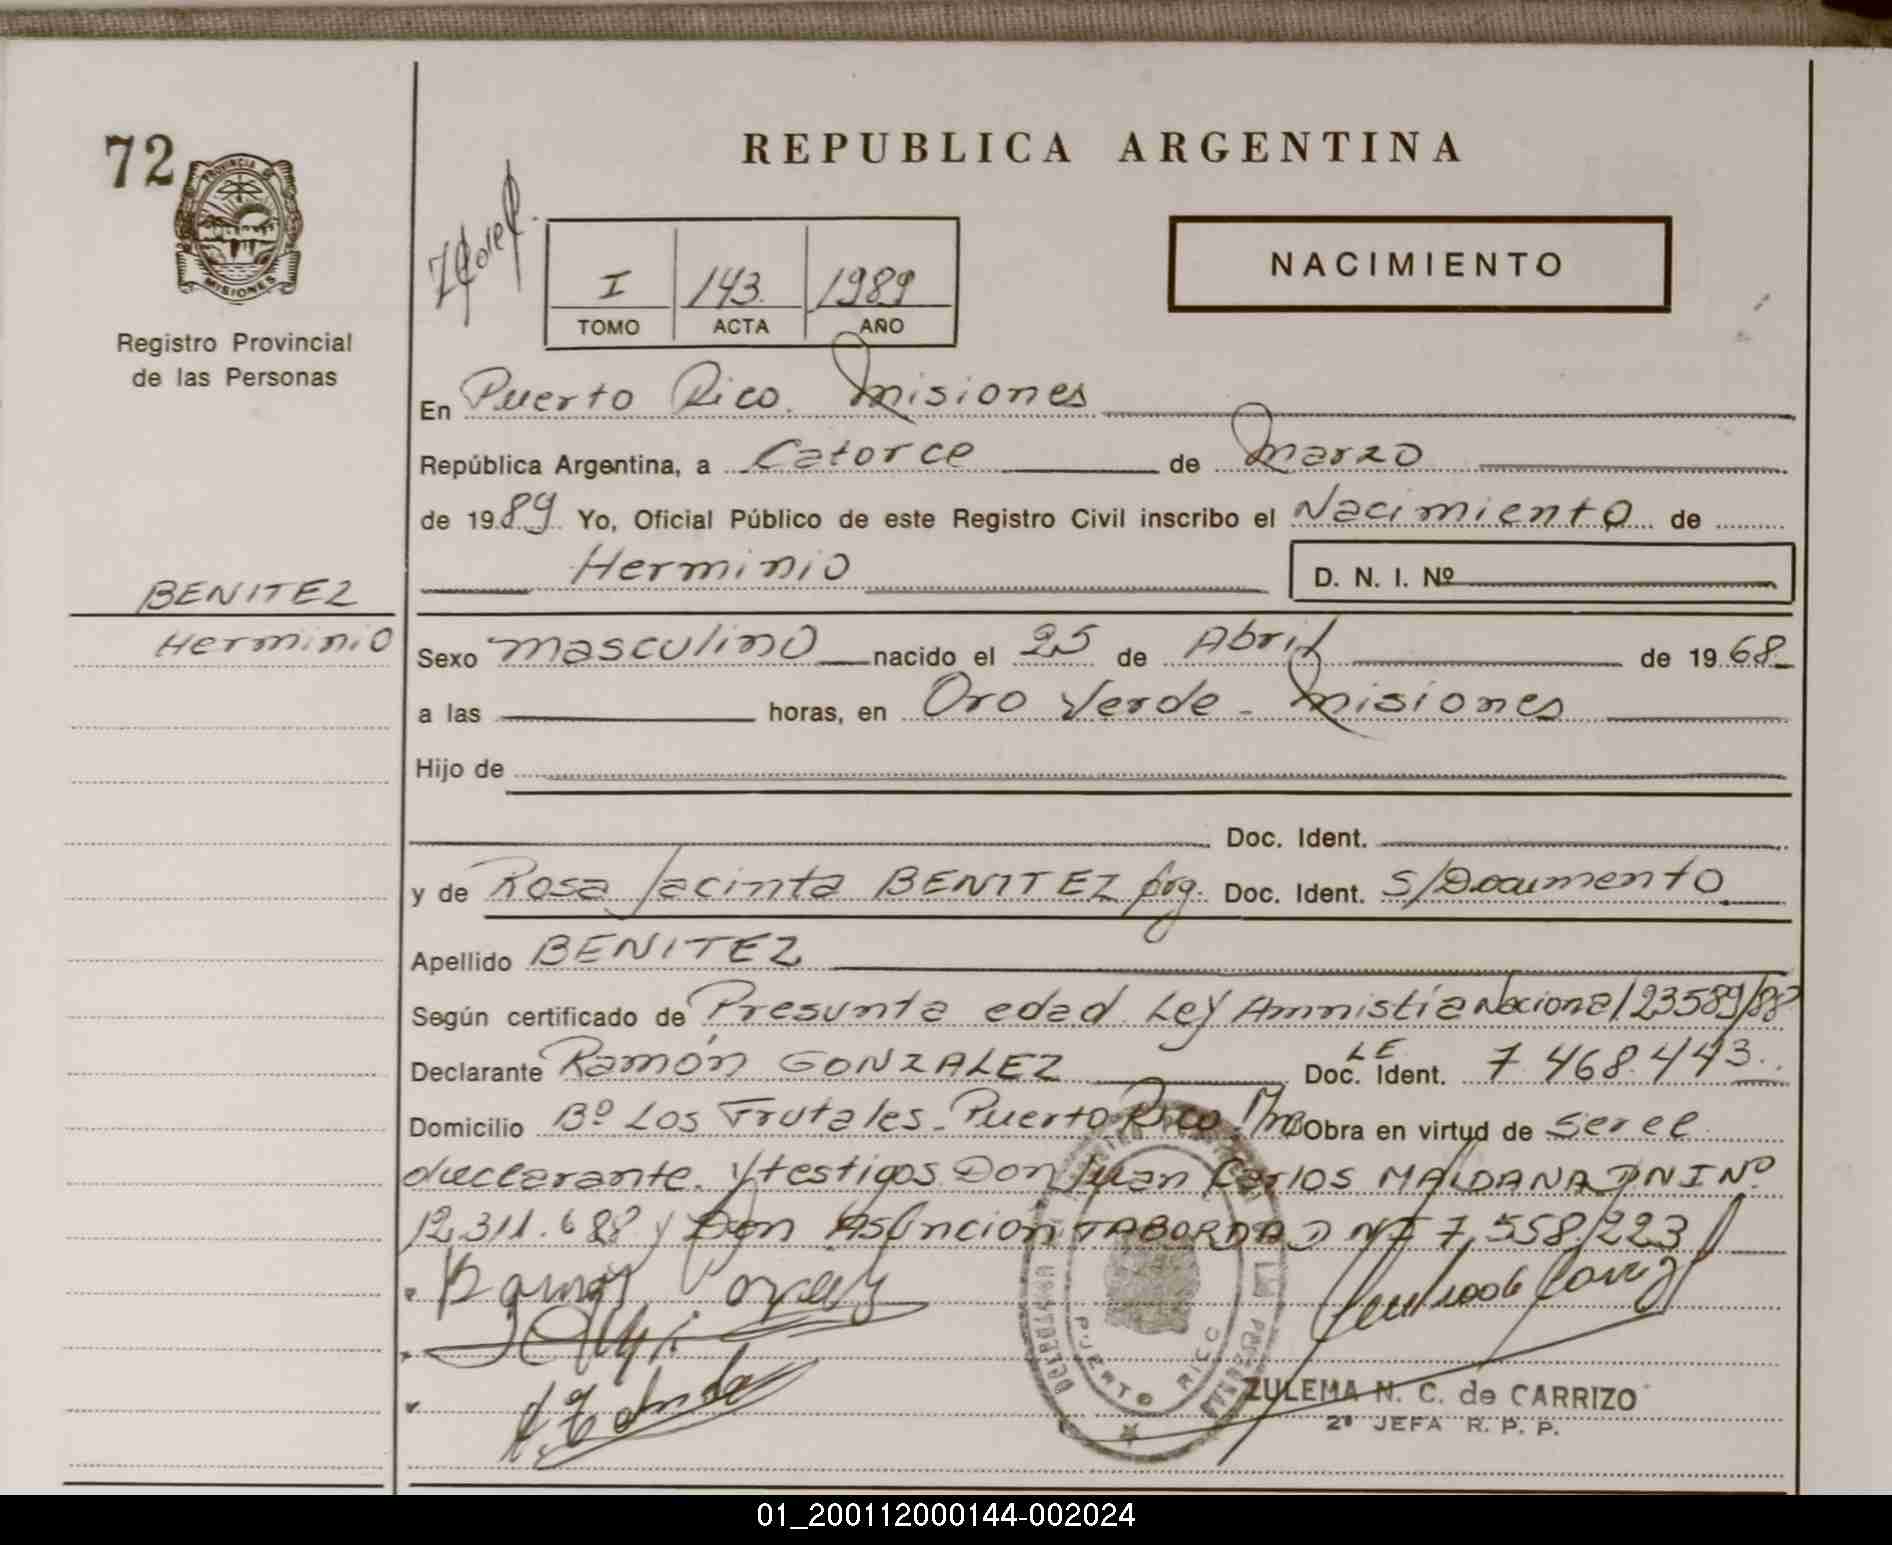 72
PROVINCIA DE
MISIONES
Registro Provincial
de las Personas
REPUBLICA ARGENTINA
I 143 1989
TOMO ACTA AÑO
NACIMIENTO
En Puerto Rico. Misiones
República Argentina, a Catorce de Marzo
de 1989 Yo, Oficial Público de este Registro Civil inscribo el Nacimiento de
Herminio
D. N. I. Nº
BENITEZ
Herminio
Sexo masculino nacido el 25 de Abril de 1968
a las horas, en Oro Verde - Misiones
Hijo de
Doc. Ident.
y de Rosa Jacinta BENITEZ Arg. Doc. Ident. S/Documento
Apellido BENITEZ
Según certificado de Presunta edad Ley Amnistía Nacional 23589/88
Declarante Ramón GONZALEZ Doc. Ident. LE 7.468.443
Domicilio Bº Los Frutales - Puerto Rico. Mnes Obra en virtud de ser el
declarante. y testigos Don Juan Carlos MALDANA DNI Nº
12.311.688 y Don Asuncion TABORDA DNI 7,558.223
PUERTO RICO
ZULEMA N. C. de CARRIZO
2ª JEFA R. P. P.
01_200112000144-002024